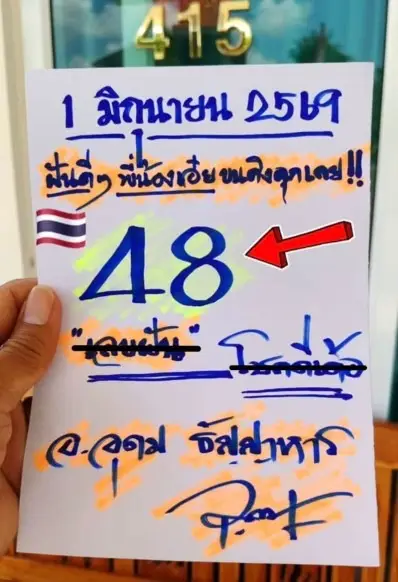 415
1 มิถุนายน 2569
ฝันดีๆ พี่น้องเอ๋ย ขนลุกเลย!!
48
"เลขฝัน" โชคดีเด้อ
อ.อุดม ธัญญาหาร